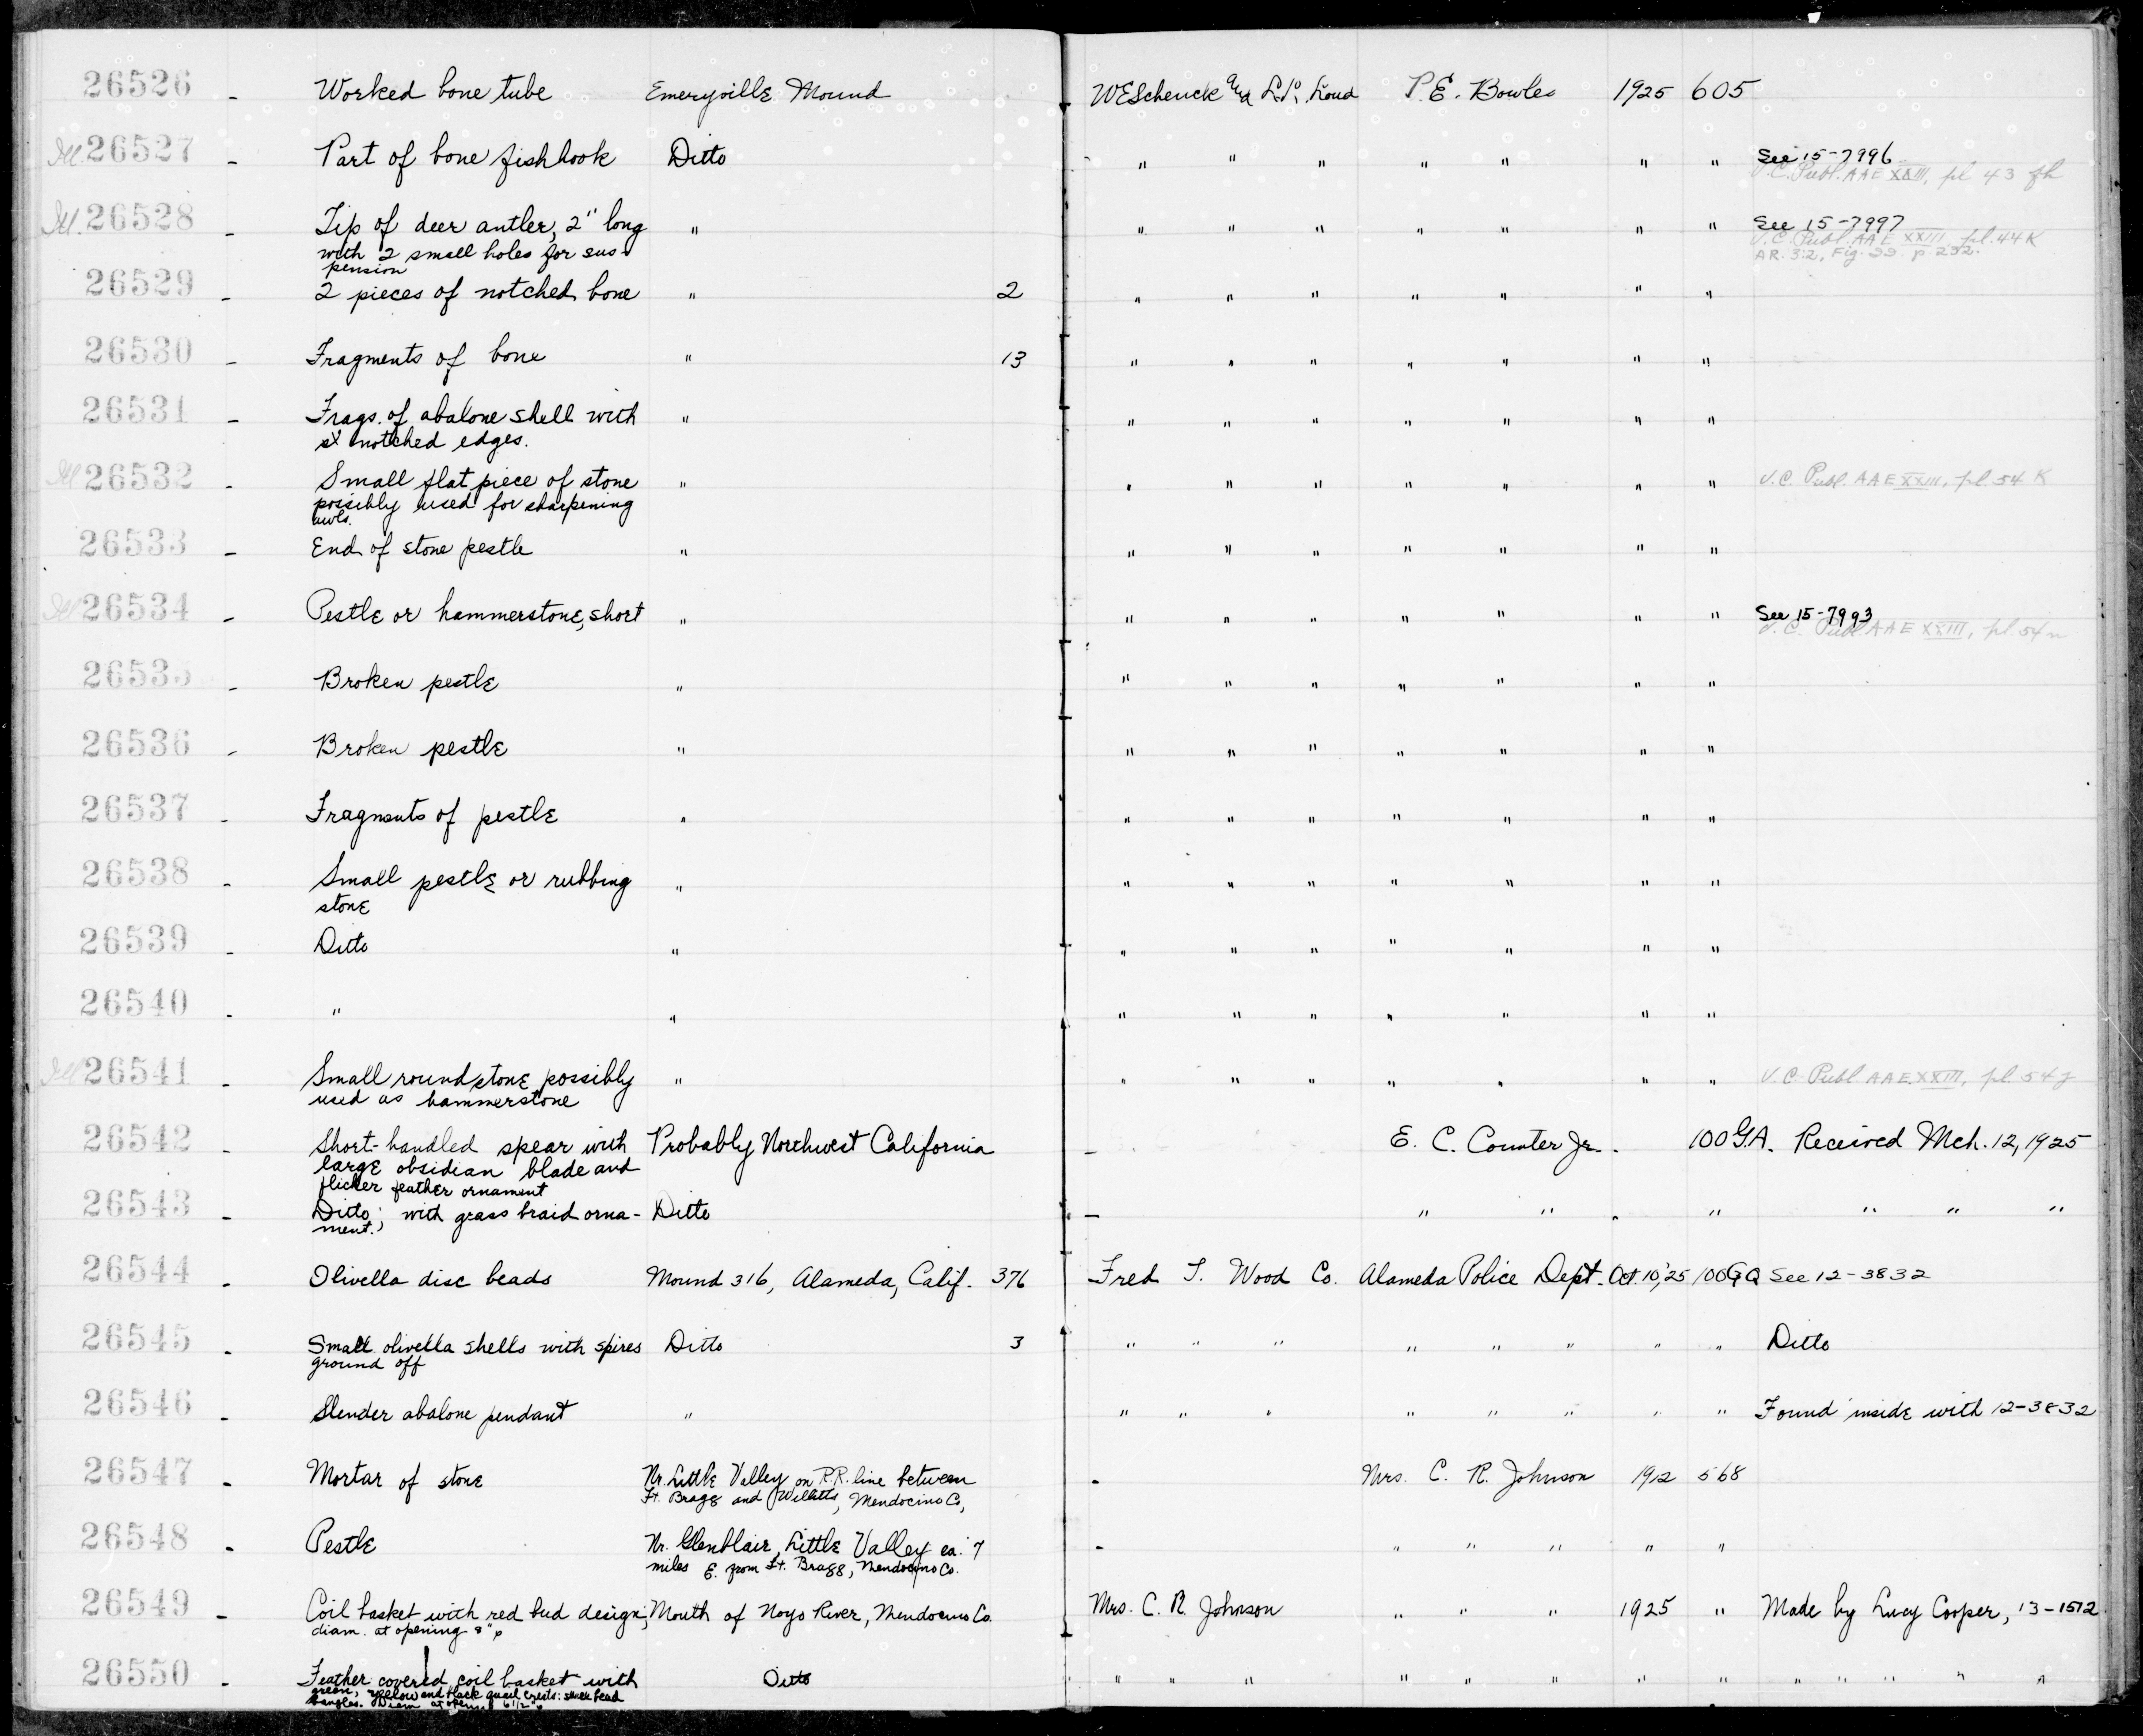 26526 - Worked bone tube Emeryville Mound WESchenck and L.L. Loud P.E. Bowles 1925 605
Ill. 26527 - Part of bone fishhook Ditto " " " " " " " See 15-7996
U.C. Publ. AAE XXIII, pl 43 fh
Ill. 26528 - Tip of deer antler, 2" long " " " " " " " " See 15-7997
with 2 small holes for sus-
pension
U.C. Publ. AAE XXIII, pl. 44 K
AR. 3:2, Fig. 22. p 232.
26529 - 2 pieces of notched bone " 2 " " " " " " "
26530 - Fragments of bone " 13 " " " " " " "
26531 - Frags. of abalone shell with " " " " " " " "
notched edges.
Ill 26532 - Small flat piece of stone " " " " " " " " U.C. Publ. AAE XXIII, pl. 54 K
possibly used for sharpening
awls.
26533 - End of stone pestle " " " " " " " "
Ill 26534 - Pestle or hammerstone, short " " " " " " " " See 15-7993
U.C. Publ AAE XXIII, pl. 54 n
26535 - Broken pestle " " " " " " " "
26536 - Broken pestle " " " " " " " "
26537 - Fragments of pestle " " " " " " " "
26538 - Small pestle or rubbing " " " " " " " "
stone
26539 - Ditto " " " " " " " "
26540 - " " " " " " " " "
Ill 26541 - Small round stone possibly " " " " " " " " U.C. Publ AAE XXIII, pl 54 j
used as hammerstone
26542 - Short-handled spear with Probably Northwest California - E. C. Counter Jr. 100 G.A. Received Mch. 12, 1925
large obsidian blade and
flicker feather ornament
26543 - Ditto; with grass braid orna- Ditto - " " " " " " "
ment.
26544 - Olivella disc beads Mound 316, Alameda, Calif. 376 Fred T. Wood Co. Alameda Police Dept. Oct. 10,'25 100GQ See 12-3832
26545 - Small olivella shells with spires Ditto 3 " " " " " " " " Ditto
ground off
26546 - Slender abalone pendant " " " " " " " " " Found inside with 12-3832
26547 - Mortar of stone Nr. Little Valley on R.R. line between - Mrs. C. R. Johnson 1912 568
Ft. Bragg and Willitts, Mendocino Co,
26548 - Pestle Nr. Glenblair, Little Valley ca. 7 - " " " " "
miles E. from Ft. Bragg, Mendocino Co.
26549 - Coil basket with red bud design; Mouth of Noyo River, Mendocino Co. Mrs. C. R. Johnson " " " 1925 " Made by Lucy Cooper, 13-1512
diam. at opening 8"
26550 - Feather covered coil basket with Ditto " " " " " " " " " " " " "
green, yellow and black quail crests: shell bead
bangles. Diam at opening 6 1/2"